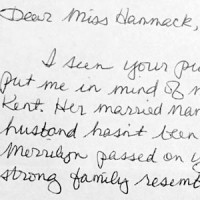 Dear Miss Hammack,
I seen your
put me in mind of
Kent. Her married
husband hasn't been
Merrilyn passed on
strong family